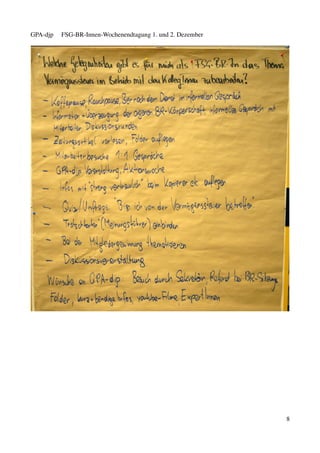 GPA-djp FSG-BR-Innen-Wochenendtagung 1. und 2. Dezember
"Welche Gelegenheiten gibt es für mich als FSG-BR In das Thema
Vermögenssteuer im Betrieb mit den KollegInnen zu bearbeiten?
- Kaffeepause, Rauchpause, Bier nach dem Dienst informellen Gespräch
- Information + Überzeugung der eigenen BR-Körperschaft informelles Gespräch mit
Mitarbeiter Diskussionsrunden
- Zeitungsartikel vorlesen, Folder auflegen
- Mitarbeiterbesuche 1:1 Gespräche
- GPA-djp Veranstaltung, Aktionswoche
- Infos mit "streng vertraulich" beim Kopierer etc auflegen
- Quiz/Umfrage: "Bin ich von der Vermögenssteuer betroffen"
- "Tratschtanten" (MeinungsführerInnen) einbinden
- Bei der Mitgliederwerbung thematisieren
- Diskussionsveranstaltung
Wünsche an GPA-djp: Besuch durch SekretärIn, Referat bei BR-Sitzung
Folder, kurze+bündige Infos, Youtube-Filme, ExpertInnen
8